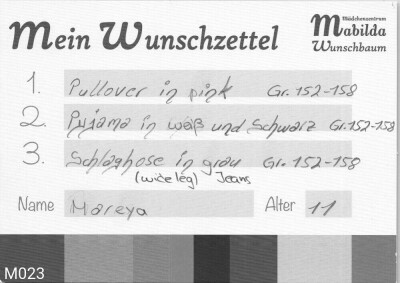 Mein Wunschzettel
Mädchenzentrum
Mabilda
Wunschbaum
1. Pullover in pink Gr. 152-158
2. Pyjama in wäß und Schwarz Gr. 152-158
3. Schlaghose in grau Gr. 152-158
(wide leg) Jeans
Name Mareya Alter 11
M023